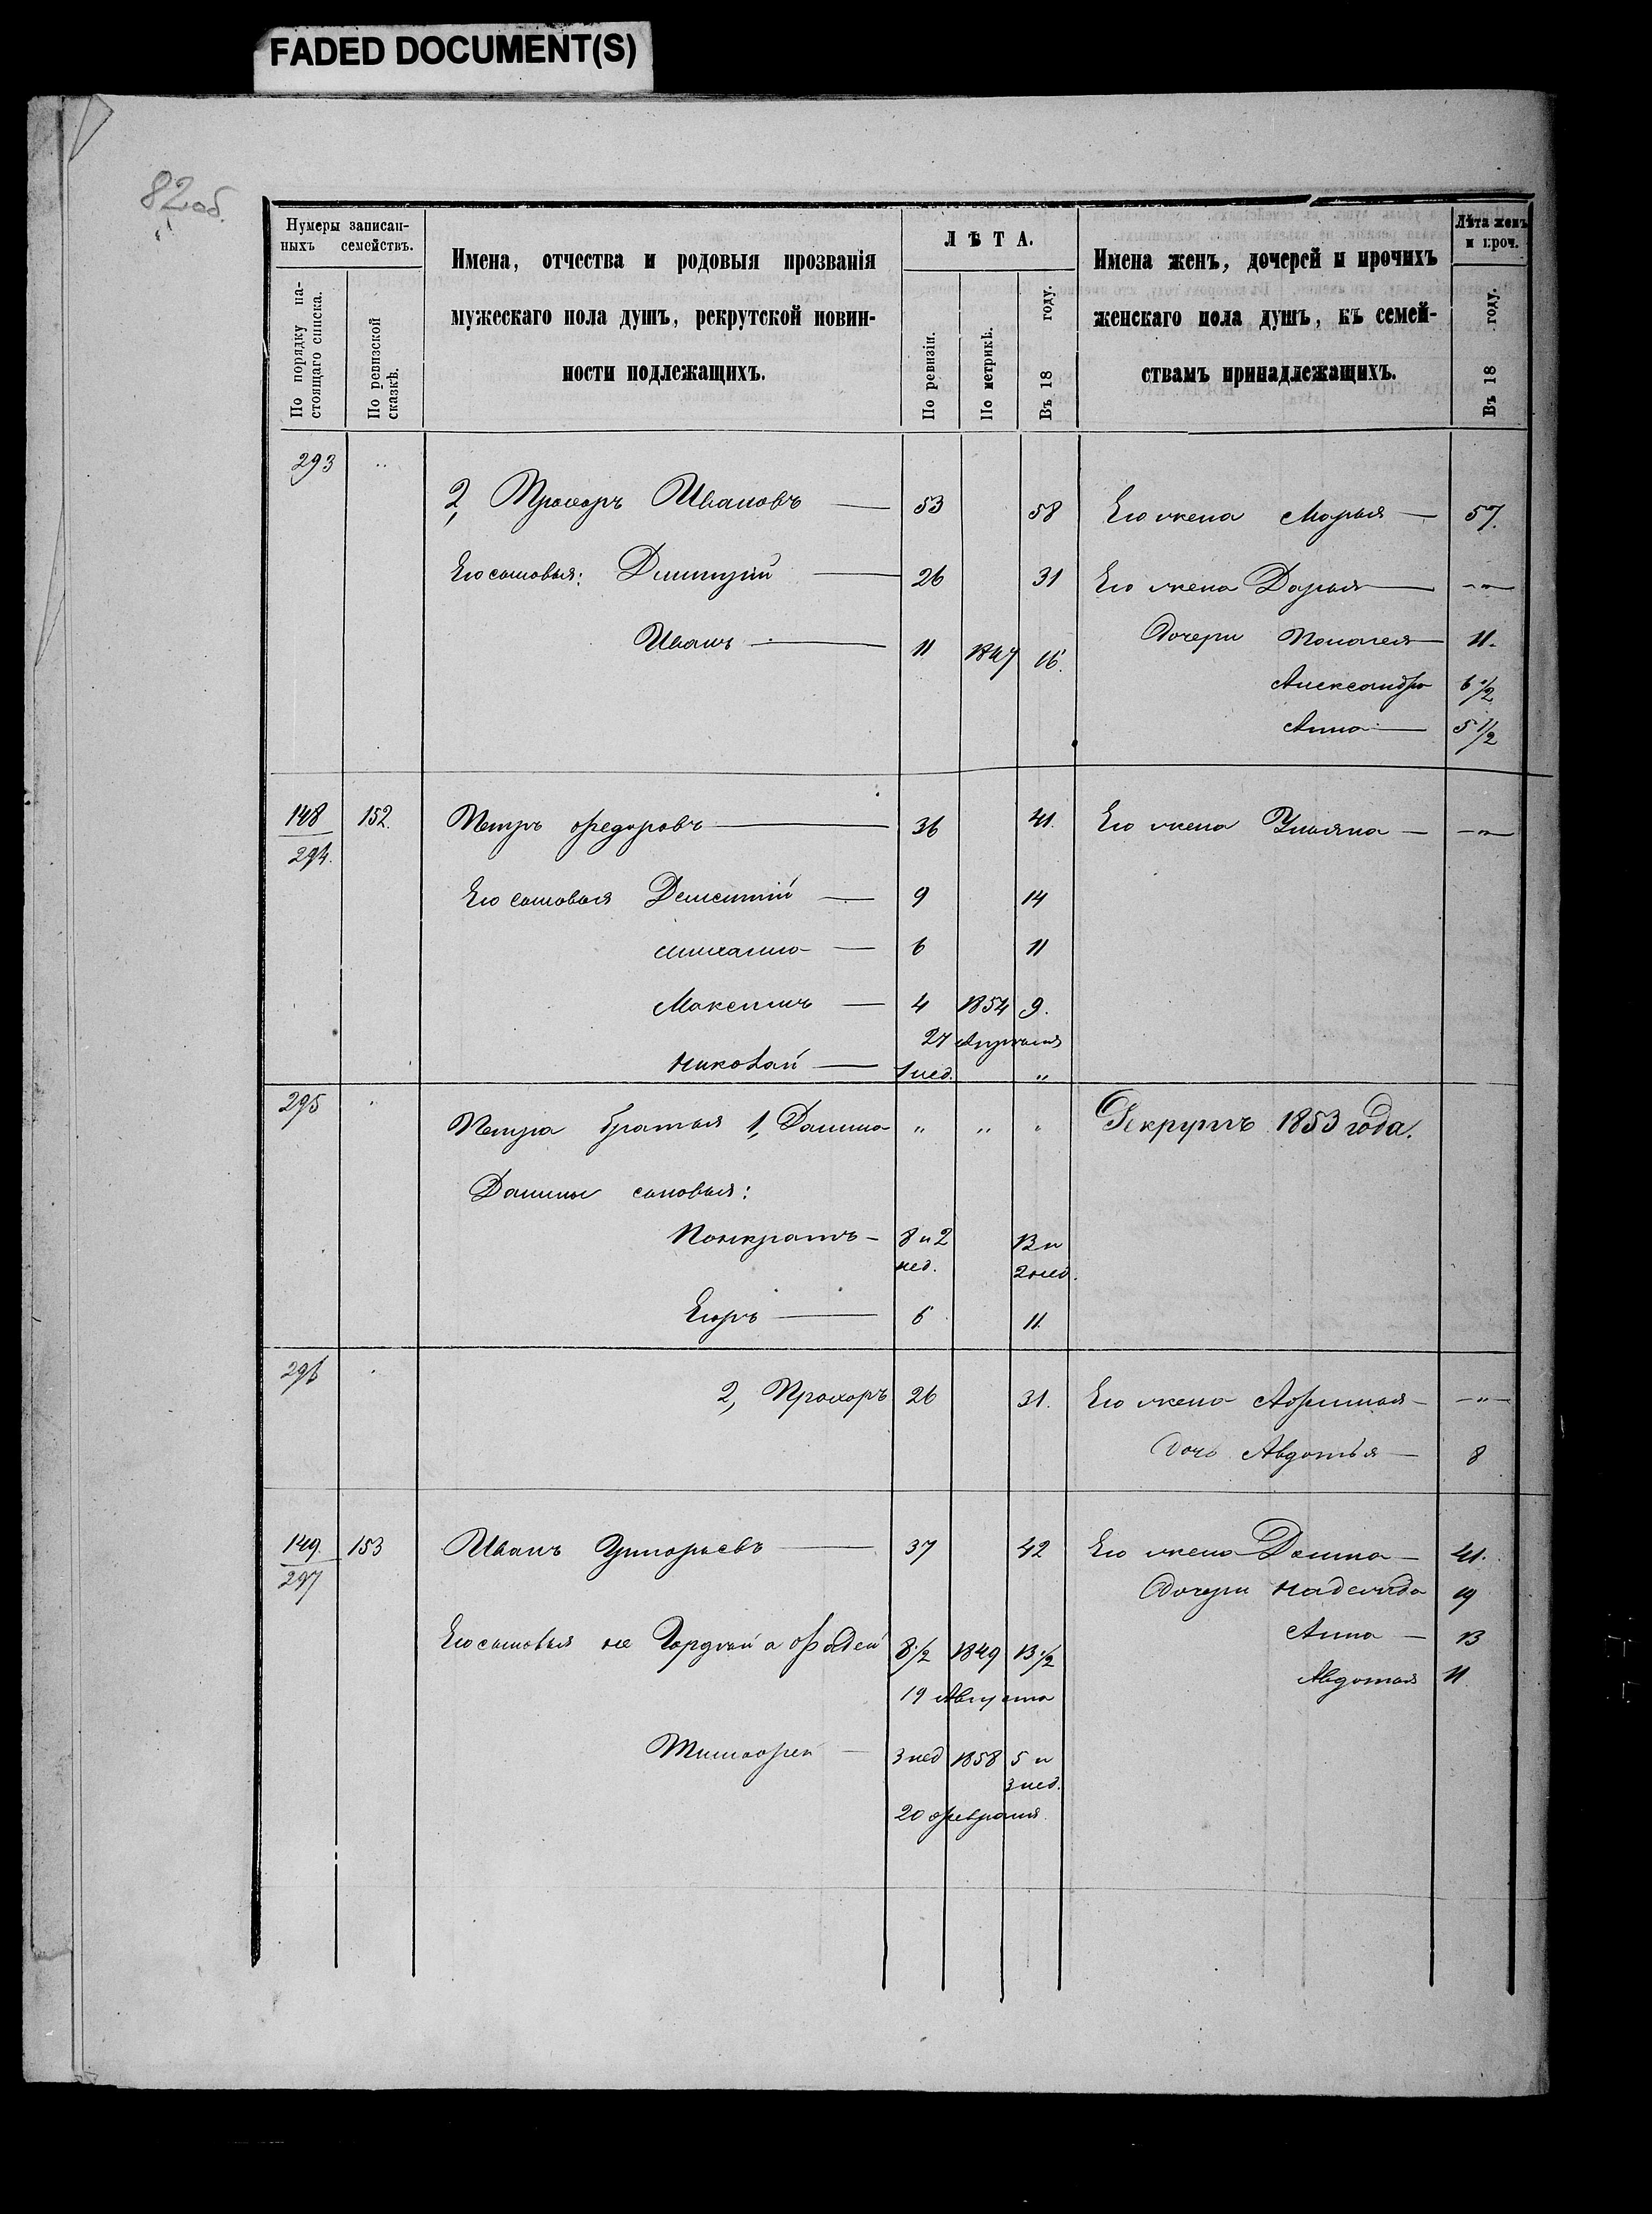 FADED DOCUMENT(S)
82 об.
Нумеры записан-
ныхъ семействъ.
По порядку на-
стоящаго списка.
По ревизской
сказкѣ.
Имена, отчества и родовыя прозванія
мужескаго пола душъ, рекрутской повин-
ности подлежащихъ.
ЛѢТА.
По ревизіи.
По метрикѣ.
Въ 18 году.
Имена женъ, дочерей и прочихъ
женскаго пола душъ, къ семей-
ствамъ принадлежащихъ.
Лѣта женъ
и проч.
Въ 18 году.
293 "
2, Прохоръ Ивановъ — 53 58 Его жена Марья — 57.
Его сыновья: Дмитрій — 26 31 Его жена Дарья — "
Иванъ — 11 1847 16. Дочери Пелагея — 11.
Александра 6 1/2
Анна — 5 1/2
148 152. Петръ Федоровъ — 36 41. Его жена Ульяна — "
294.
Его сыновья Дементій — 9 14
Михаило — 6 11
Максимъ — 4 1854 9.
27 Апрѣля
Николай — 1 нед. "
295 "
Петра братья 1, Данила " " " Рекрутъ 1853 года.
Данилы сыновья:
Панкратъ — 8 и 2 13 и
нед. 2 нед.
Егоръ — 6 11.
296 "
2, Прохоръ 26 31. Его жена Афимья — "
Дочь Авдотья — 8
149. 153 Иванъ Григорьевъ — 37 42 Его жена Домна — 41.
297 Дочери Надежда 19
Его сыновья не Гордѣй а Фадей 8 1/2 1849 13 1/2 Анна — 13
19 Августа Авдотья 11
Тимофей — 3 нед 1858 5 и
3 нед.
20 февраля